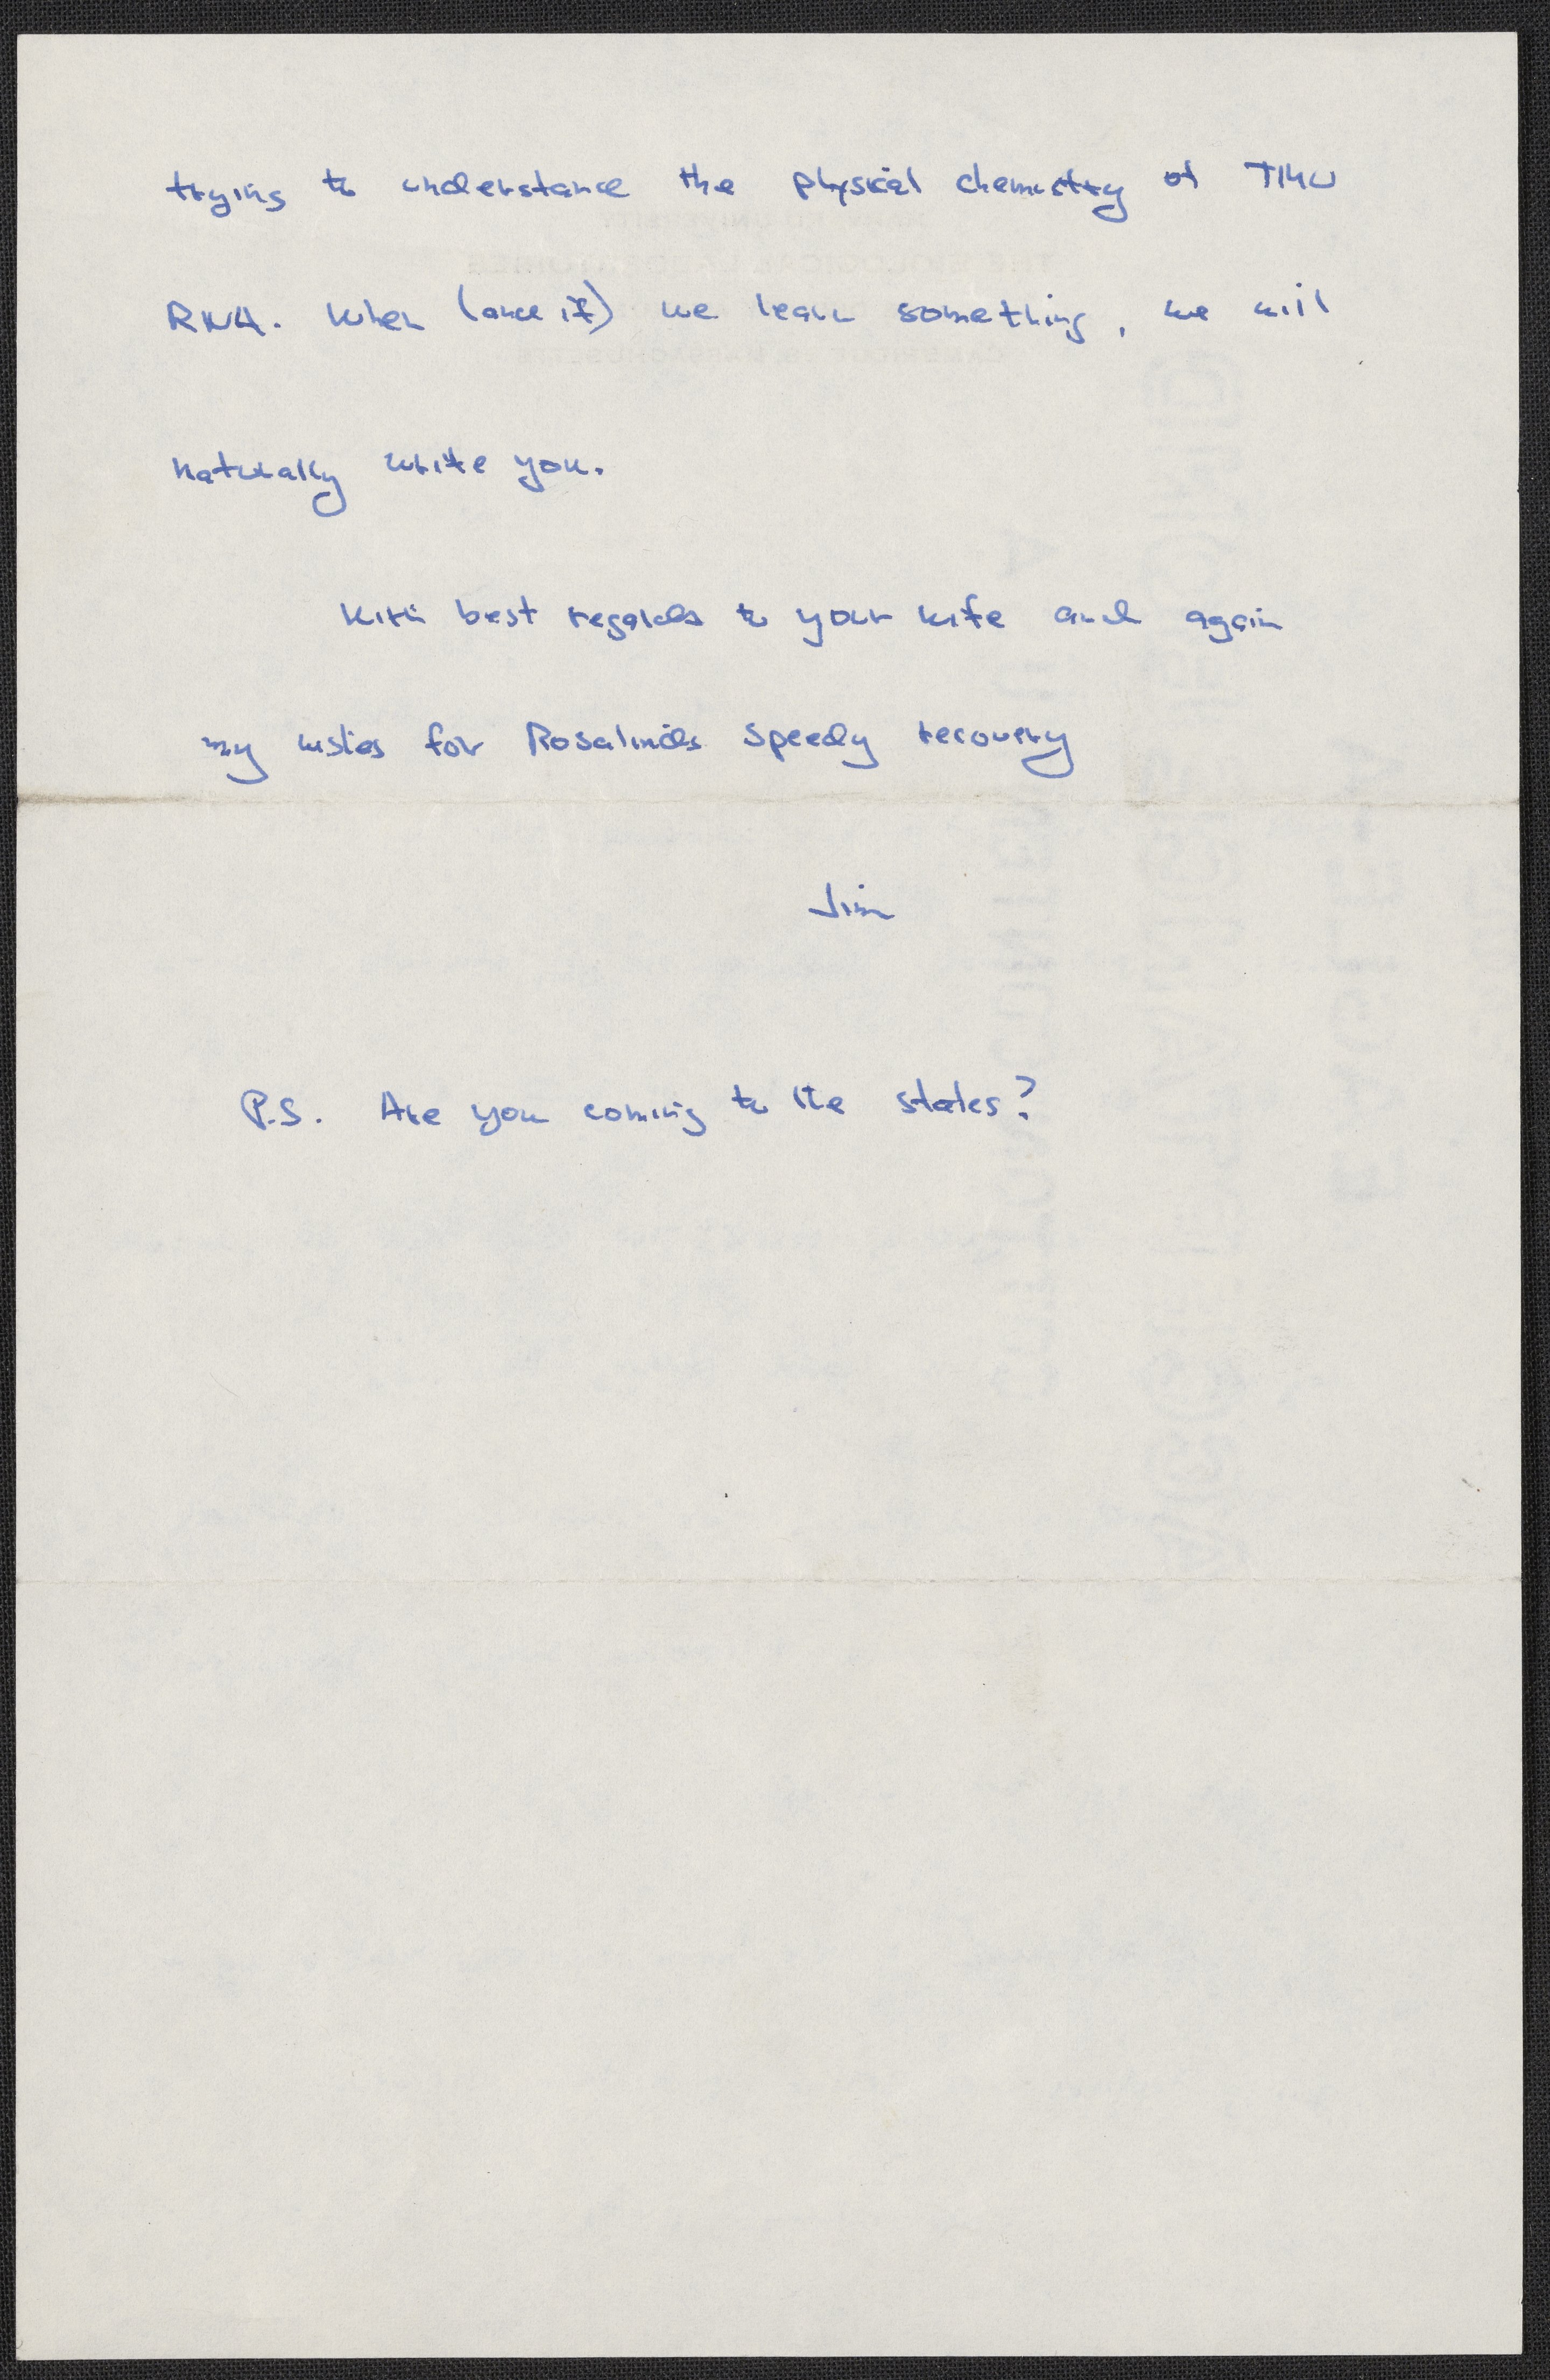 trying to understand the physical chemistry of TMV
RNA. When (and if) we learn something, we will
naturally write you.
With best regards to your wife and again
my wishes for Rosalinds speedy recovery
Jim
P.S. Are you coming to the states?